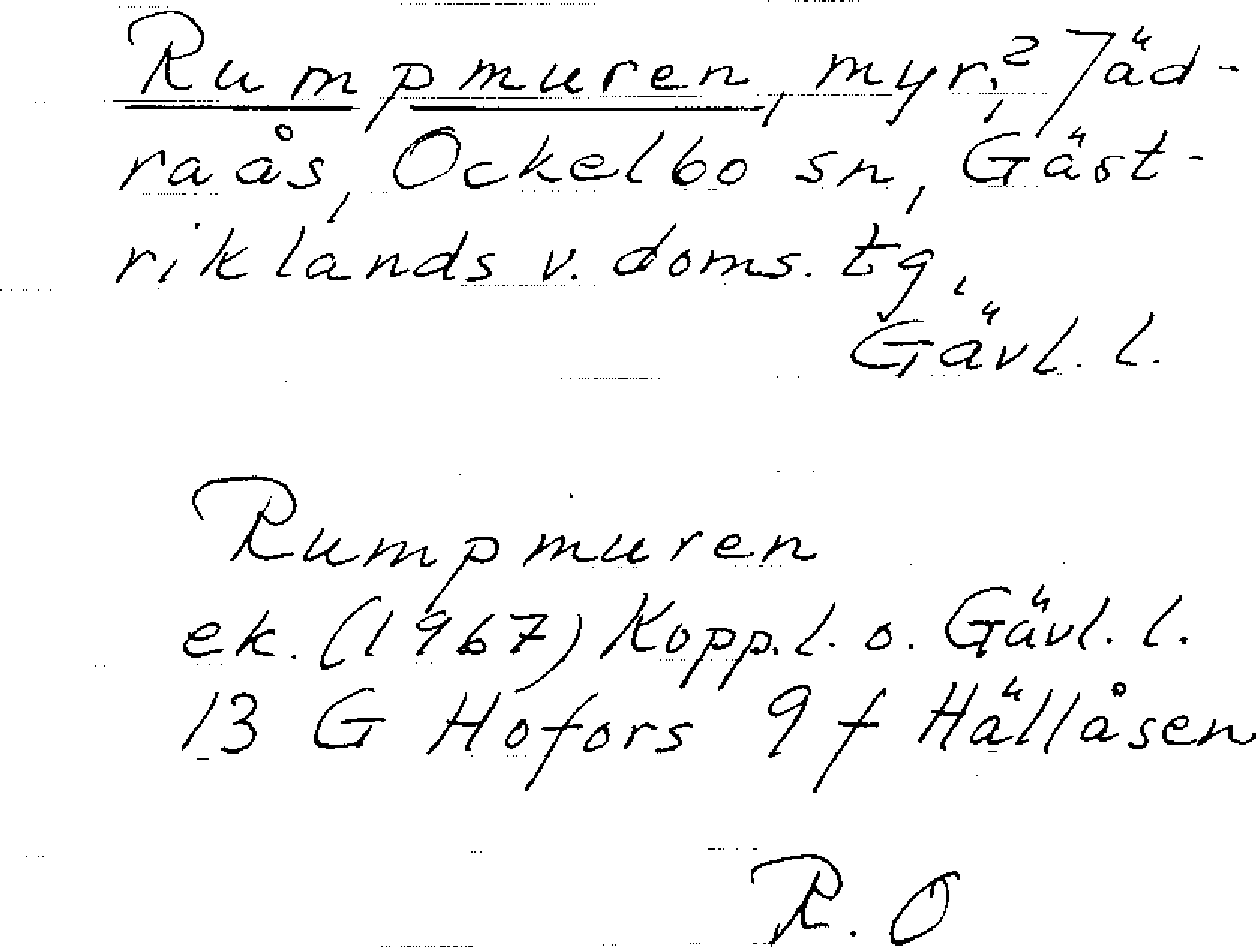 Rumpmuren, myr; ² Jäd-
raås, Ockelbo sn, Gäst-
riklands v. doms. tg,
Gävl. l.
Rumpmuren
ek. (1967) Kopp. l. o. Gävl. l.
13 G Hofors 9 f Hällåsen
R. O